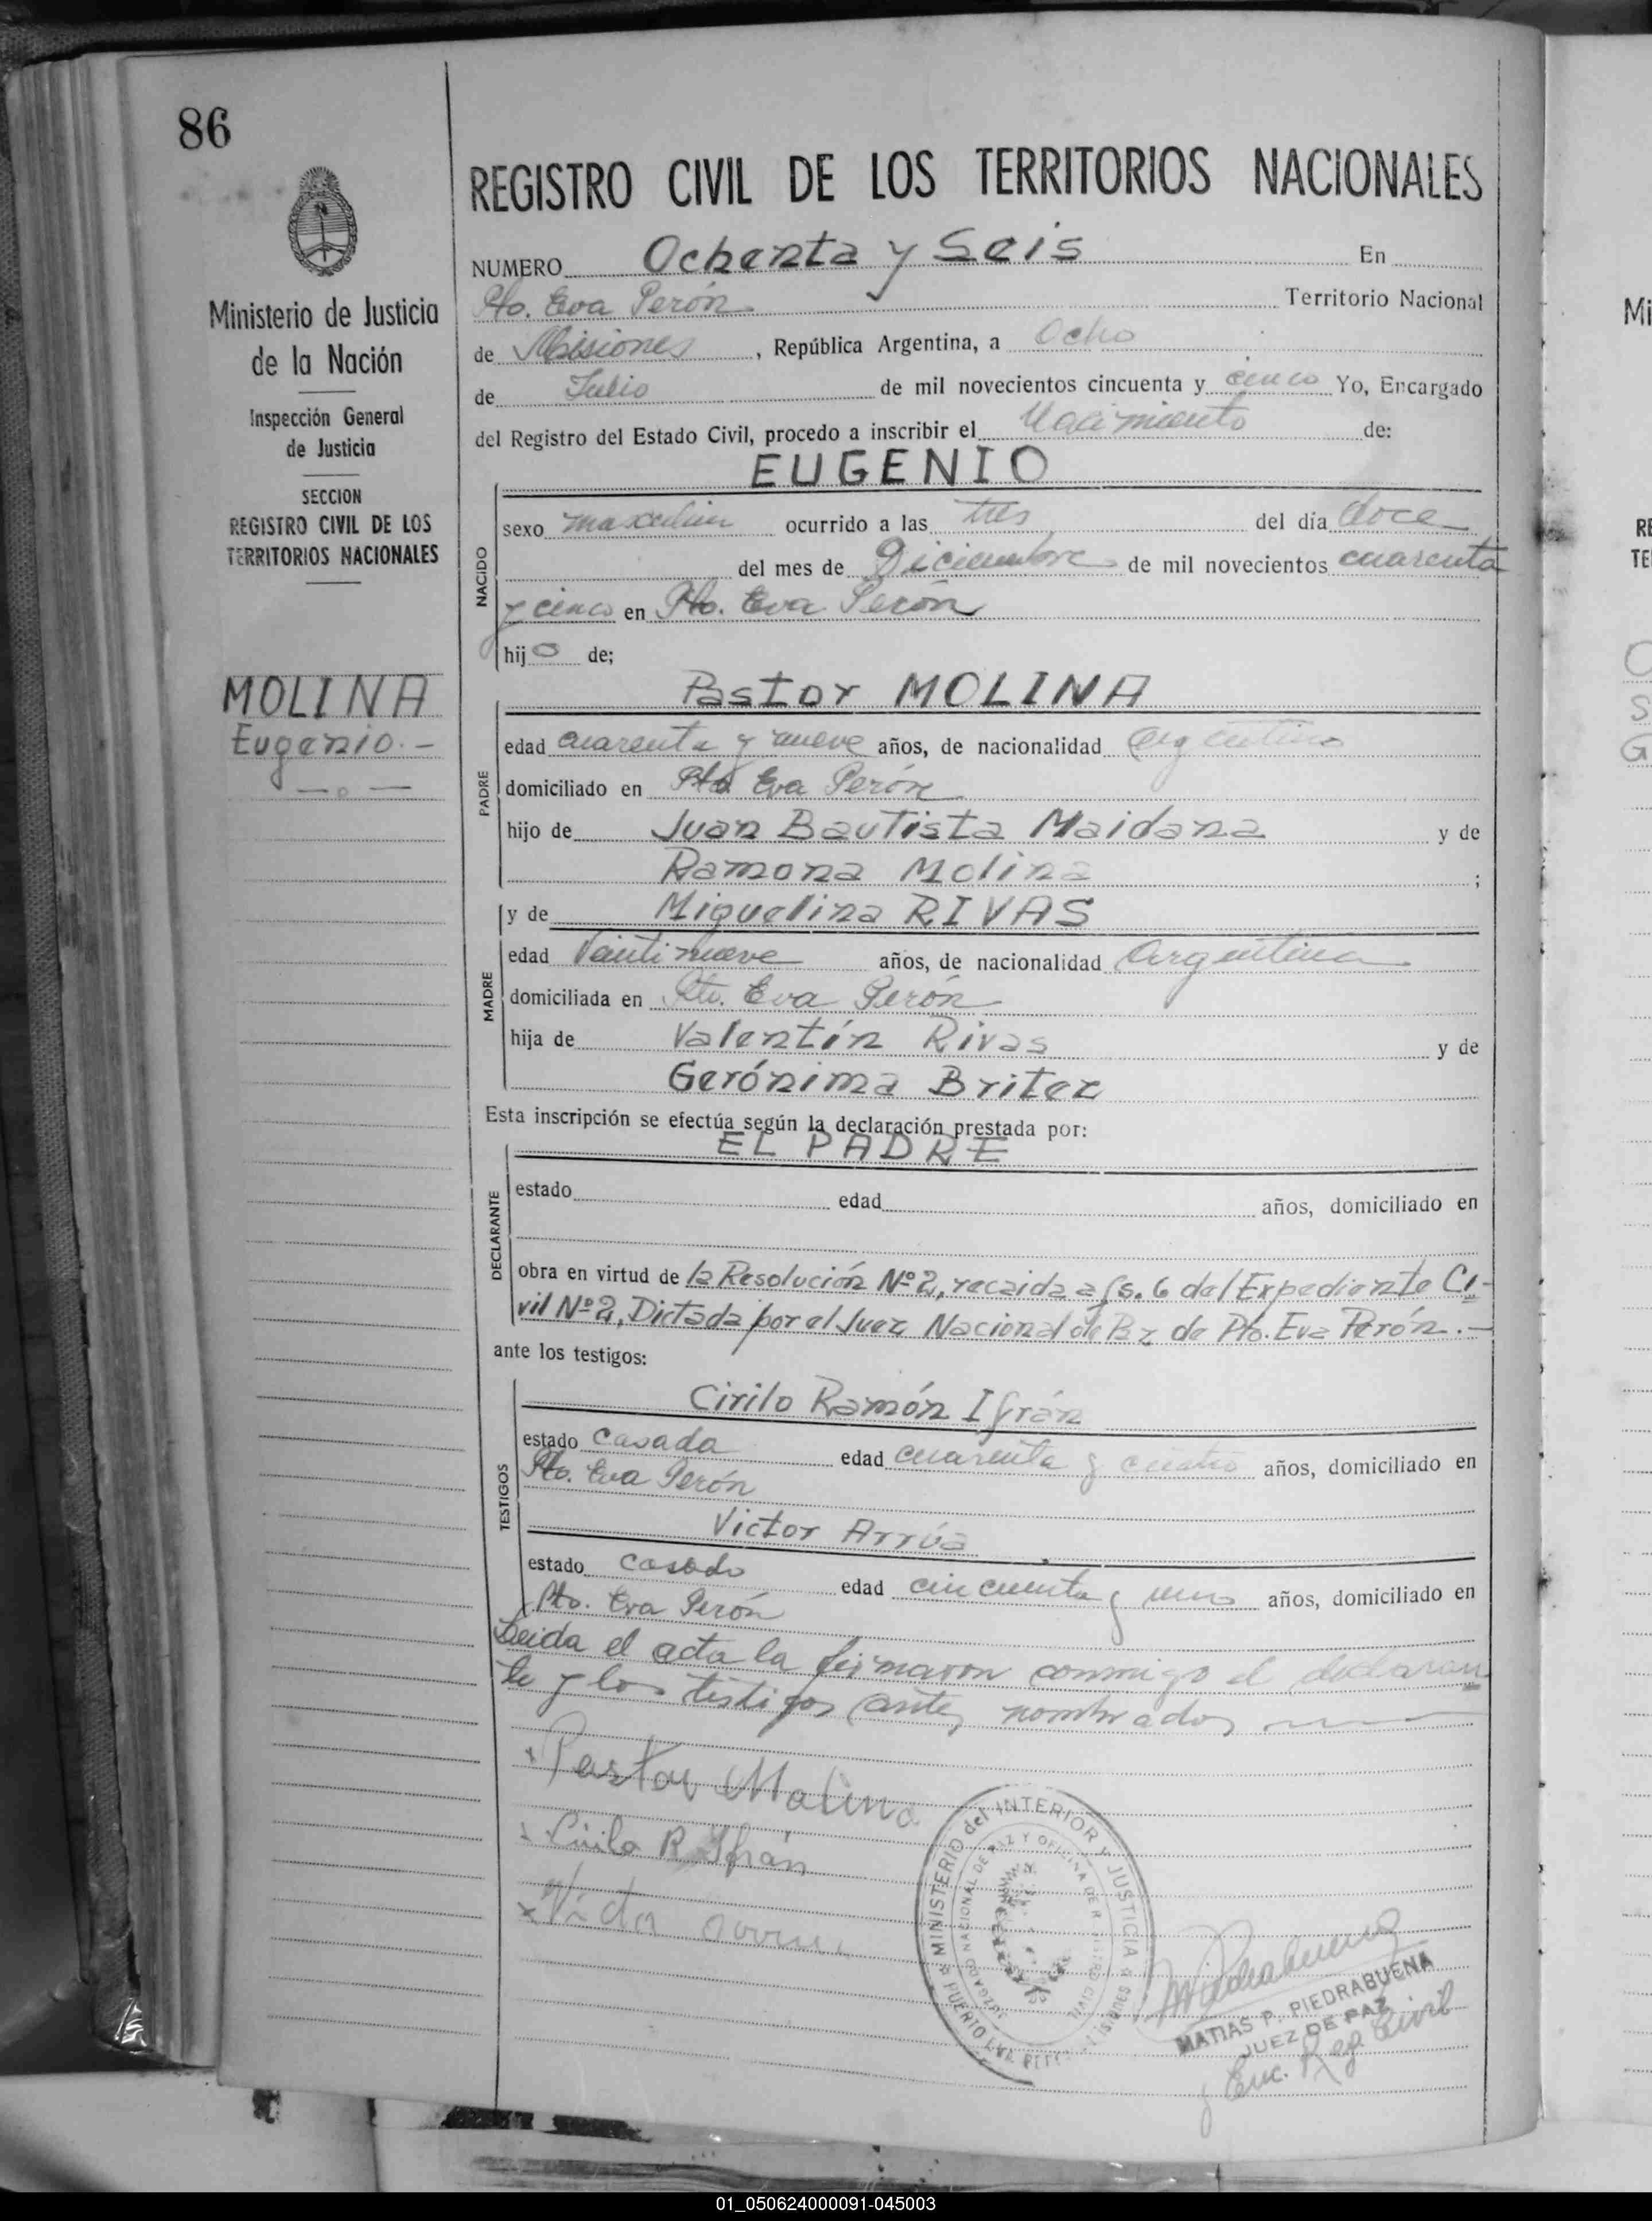 86
REGISTRO CIVIL DE LOS TERRITORIOS NACIONALES
NUMERO Ochenta y Seis En
Pto. Eva Perón Territorio Nacional
de Misiones, República Argentina, a Ocho
de Julio de mil novecientos cincuenta y cinco Yo, Encargado
del Registro del Estado Civil, procedo a inscribir el Nacimiento de:
Ministerio de Justicia
de la Nación
Inspección General
de Justicia
SECCION
REGISTRO CIVIL DE LOS
TERRITORIOS NACIONALES
MOLINA
Eugenio.-
EUGENIO
NACIDO
sexo masculin ocurrido a las tres del día doce
del mes de Diciembre de mil novecientos cuarenta
y cinco en Pto. Eva Perón
hijo de;
Pastor MOLINA
PADRE
edad cuarenta y nueve años, de nacionalidad Argentino
domiciliado en Pto Eva Perón
hijo de Juan Bautista Maidana y de
Ramona Molina ;
y de Miguelina RIVAS
MADRE
edad Veinti nueve años, de nacionalidad Argentina
domiciliada en Pto. Eva Perón
hija de Valentín Rivas y de
Gerónima Britez
Esta inscripción se efectúa según la declaración prestada por:
EL PADRE
DECLARANTE
estado edad años, domiciliado en
obra en virtud de la Resolución Nº 2, recaida a fs. 6 del Expediente Ci-
vil Nº 2, Dictada por el Juez Nacional de Paz de Pto. Eva Perón.-
ante los testigos:
TESTIGOS
Cirilo Ramón Ifrán
estado casada edad cuarenta y cuatro años, domiciliado en
Pto. Eva Perón
Victor Arrúa
estado casado edad cincuenta y uno años, domiciliado en
Pto. Eva Perón
Leida el acta la firmaron conmigo el declaran
te y los testigos antes nombrados
x Pastor Molina
x Cirilo R. Ifrán
x Victor
MINISTERIO del INTERIOR Y JUSTICIA
JUZGADO NACIONAL DE PAZ Y OFICINA DE REGISTRO CIVIL
PUERTO EVA PERON MISIONES
MPiedrabuena
MATIAS P. PIEDRABUENA
JUEZ DE PAZ
y Enc. Reg Civil
01_050624000091-045003